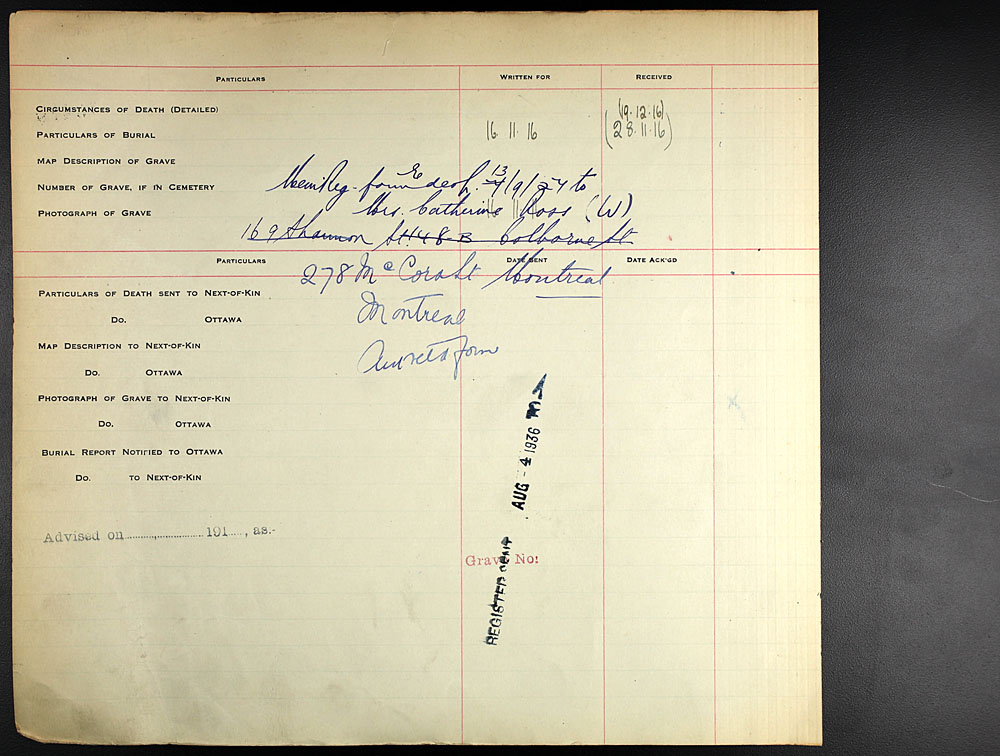 PARTICULARS WRITTEN FOR RECEIVED
CIRCUMSTANCES OF DEATH (DETAILED) (19.12.16)
PARTICULARS OF BURIAL 16 11 16 (28.11.16)
MAP DESCRIPTION OF GRAVE
NUMBER OF GRAVE, IF IN CEMETERY form desp. 13/9/24 to
PHOTOGRAPH OF GRAVE Mrs. Catherine Ross (W)
169 Shannon St 48-B Colborne St
PARTICULARS DATE SENT DATE ACK'GD
278 McCord St Montreal
PARTICULARS OF DEATH SENT TO NEXT-OF-KIN
DO. OTTAWA Montreal
MAP DESCRIPTION TO NEXT-OF-KIN
form
DO. OTTAWA
PHOTOGRAPH OF GRAVE TO NEXT-OF-KIN
DO. OTTAWA
BURIAL REPORT NOTIFIED TO OTTAWA
DO. TO NEXT-OF-KIN
AUG - 4 1936
Advised on 191 , as:-
Grave No:
REGISTER